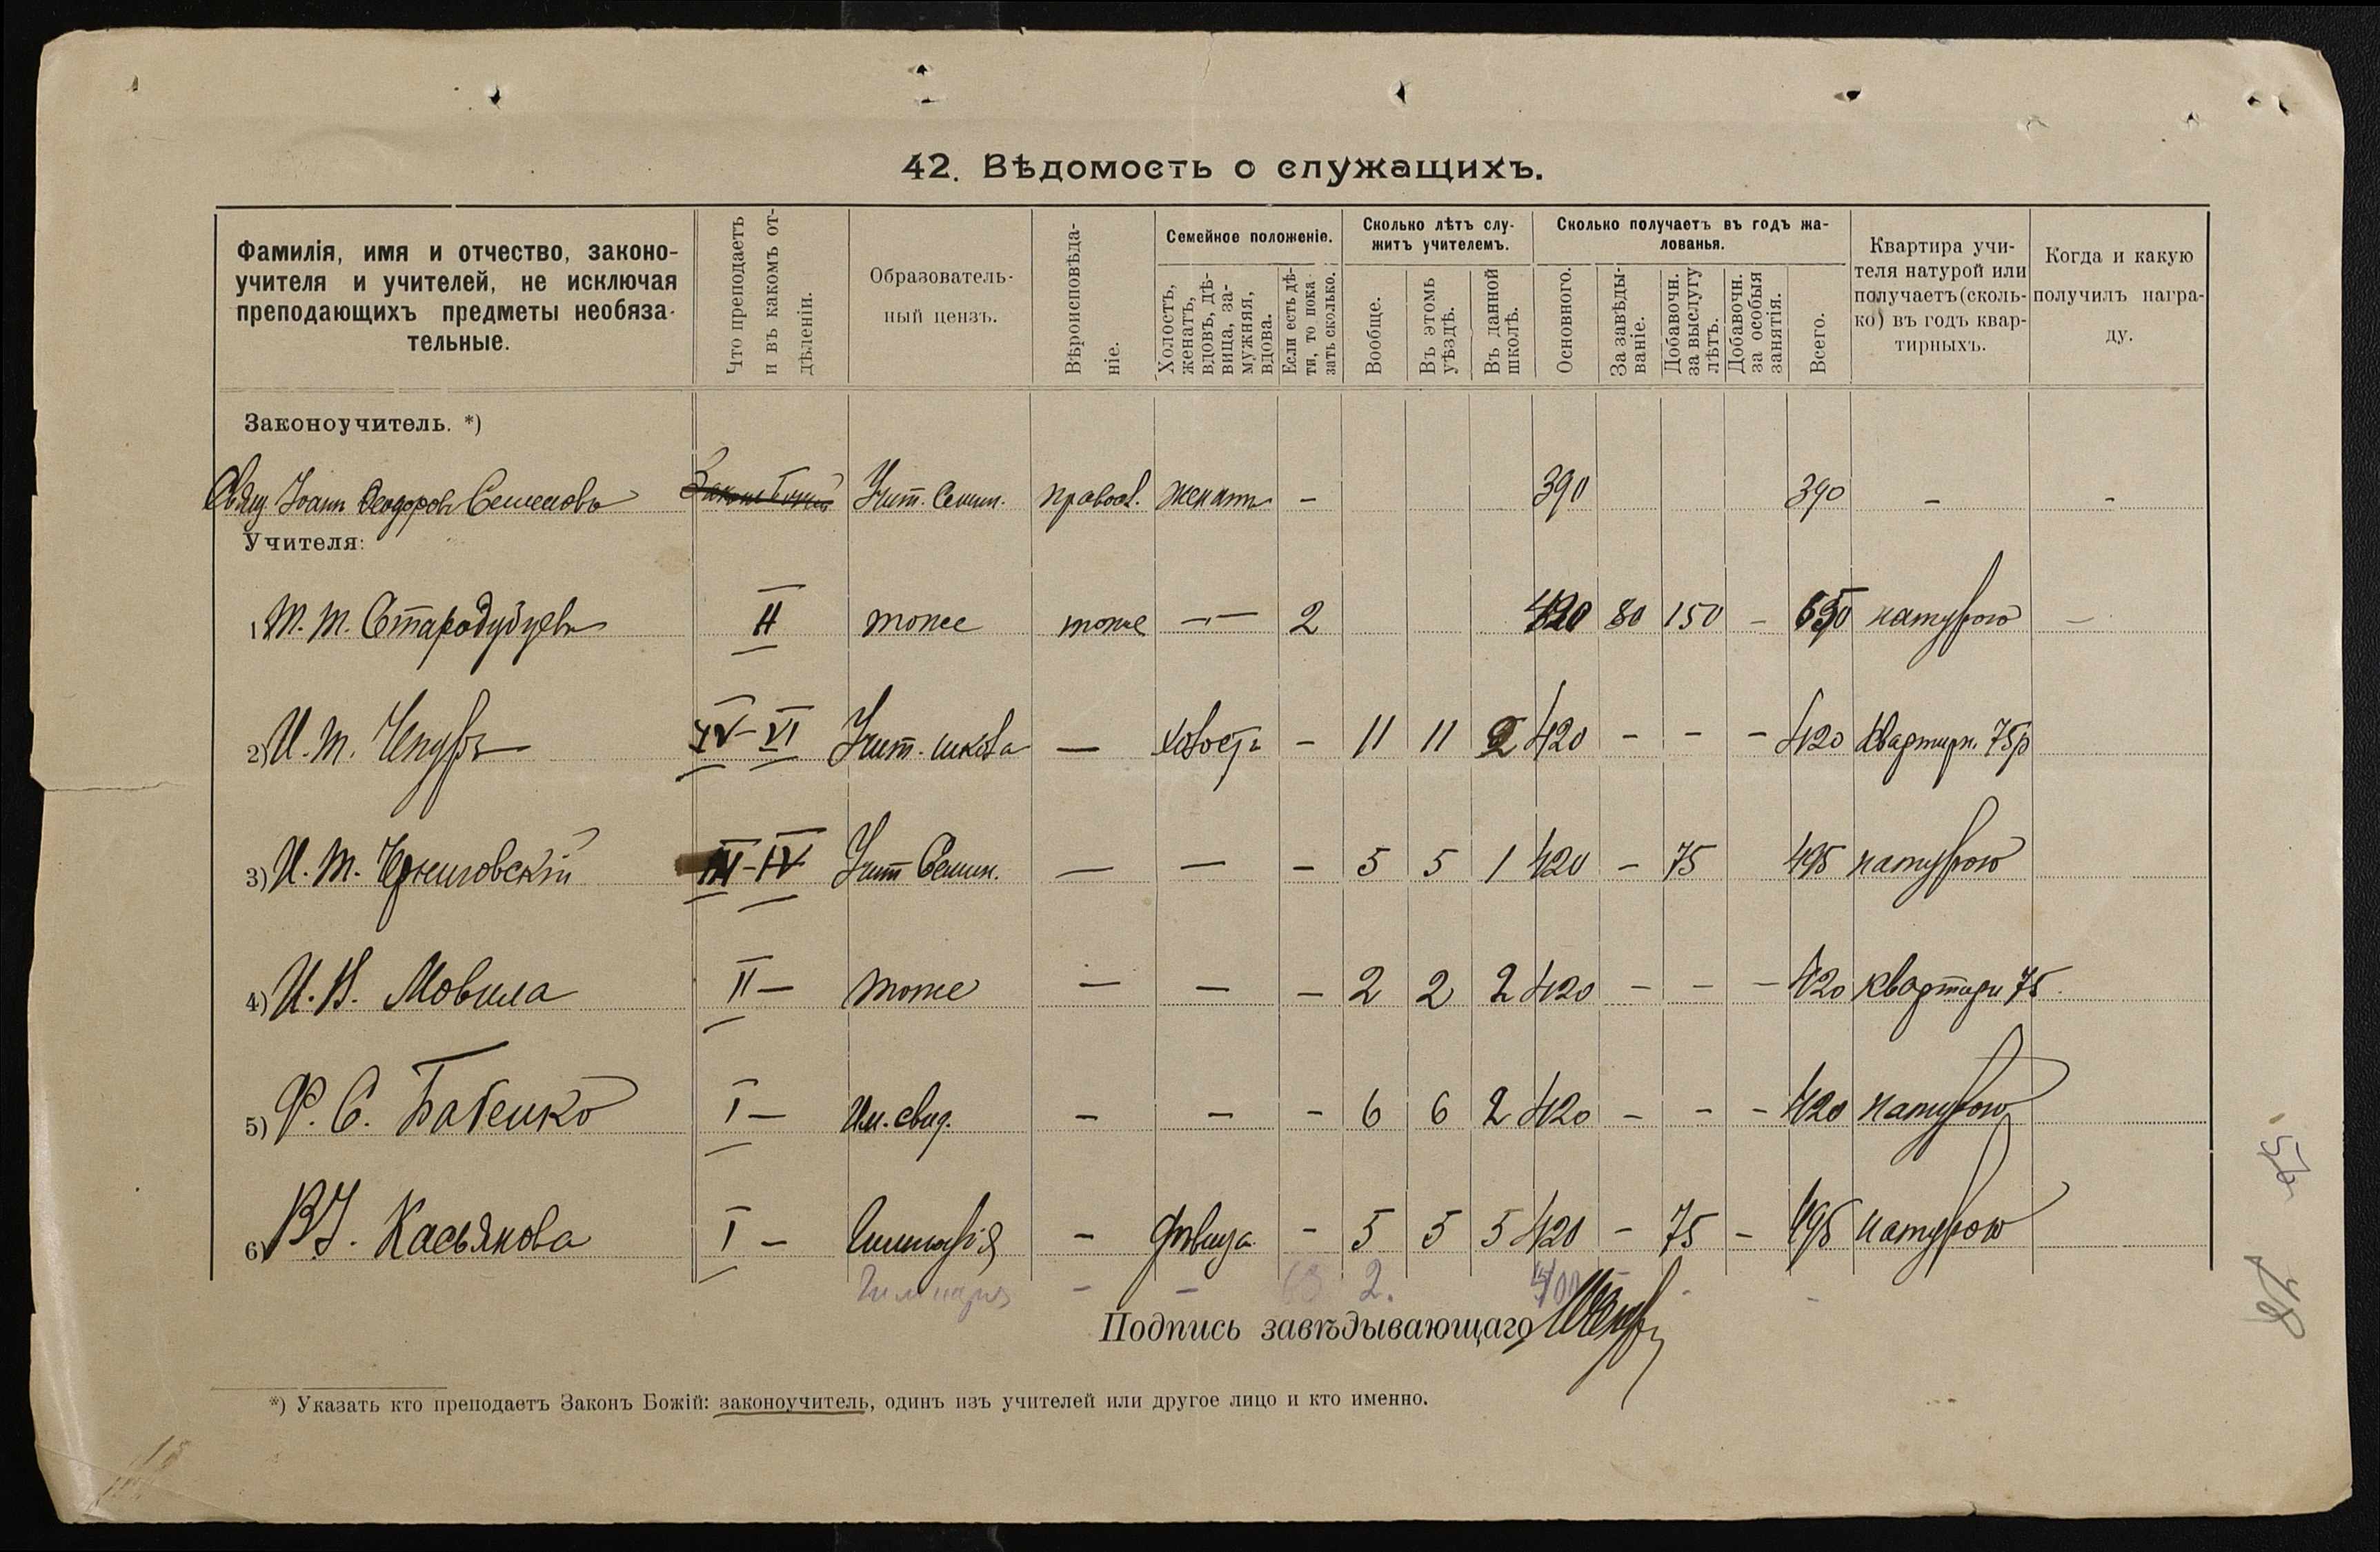 42. Вѣдомость о служащихъ.
Фамилія, имя и отчество, законо-
учителя и учителей, не исключая
преподающихъ предметы необяза-
тельные.
Что преподаетъ
и въ какомъ от-
дѣленіи.
Образователь-
ный цензъ.
Вѣроисповѣда-
ніе.
Семейное положеніе.
Холостъ,
женатъ,
вдовъ, дѣ-
вица, за-
мужняя,
вдова.
Если есть дѣ-
ти, то пока-
зать сколько.
Сколько лѣтъ слу-
житъ учителемъ.
Вообще.
Въ этомъ
уѣздѣ.
Въ данной
школѣ.
Сколько получаетъ въ годъ жа-
лованья.
Основного.
За завѣды-
ваніе.
Добавочн.
за выслугу
лѣтъ.
Добавочн.
за особыя
занятія.
Всего.
Квартира учи-
теля натурой или
получаетъ (сколь-
ко) въ годъ квар-
тирныхъ.
Когда и какую
получилъ награ-
ду.
Законоучитель. *)
Свящ. Іоанн Феодоров Семеновъ Законъ Божій Учит. Семин. правосл. женатъ - 390 390 - -
Учителя:
1) М. М. Стародубцевъ II тоже тоже — — 2 420 80 150 - 650 натурою -
2) И. М. Чепуръ IV-VI Учит. школа — холостъ - 11 11 2 420 - - - 420 Квартирн. 75 р
3) И. М. Черниговскій III-IV Учит Семин. — — - 5 5 1 420 - 75 495 натурою
4) И. В. Мовила II — тоже — — - 2 2 2 420 - - - 420 квартирн 75
5) Ф. С. Бабенко I — Им. свид. - - - 6 6 2 420 - - - 420 натурою
6) В. І. Касьянова I — Гимназія - дѣвица - 5 5 5 420 - 75 - 495 натурою
Гимназія - - 2. 400 -
Подпись завѣдывающаго
*) Указать кто преподаетъ Законъ Божій: законоучитель, одинъ изъ учителей или другое лицо и кто именно.